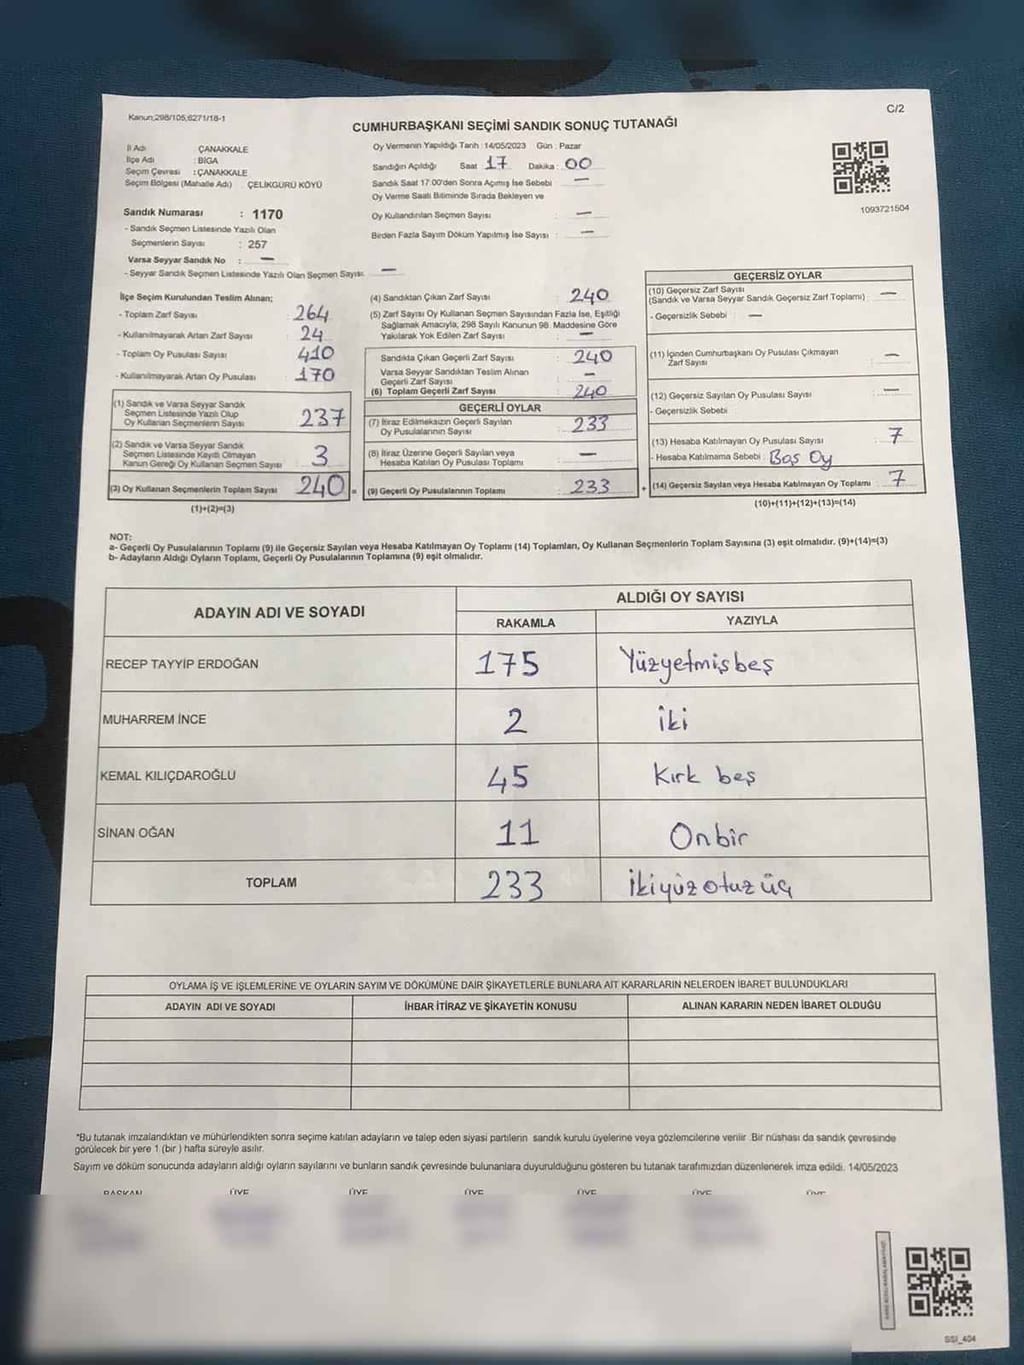 Kanun;298/105,6271/18-1
C/2
CUMHURBAŞKANI SEÇİMİ SANDIK SONUÇ TUTANAĞI
İl Adı ÇANAKKALE
İlçe Adı : BİGA
Seçim Çevresi : ÇANAKKALE
Seçim Bölgesi (Mahalle Adı) ÇELİKGÜRÜ KÖYÜ
Oy Vermenin Yapıldığı Tarih :14/05/2023 Gün : Pazar
Sandığın Açıldığı Saat 17 Dakika : 00
Sandık Saat 17:00'den Sonra Açılmış İse Sebebi —
Oy Verme Saati Bitiminde Sırada Bekleyen ve
Oy Kullandırılan Seçmen Sayısı —
Birden Fazla Sayım Döküm Yapılmış İse Sayısı : —
1093721504
Sandık Numarası : 1170
- Sandık Seçmen Listesinde Yazılı Olan
Seçmenlerin Sayısı : 257
Varsa Seyyar Sandık No : —
- Seyyar Sandık Seçmen Listesinde Yazılı Olan Seçmen Sayısı —
İlçe Seçim Kurulundan Teslim Alınan;
- Toplam Zarf Sayısı 264
- Kullanılmayarak Artan Zarf Sayısı 24
- Toplam Oy Pusulası Sayısı 410
- Kullanılmayarak Artan Oy Pusulası 170
(1) Sandık ve Varsa Seyyar Sandık
Seçmen Listesinde Yazılı Olup
Oy Kullanan Seçmenlerin Sayısı 237
(2) Sandık ve Varsa Seyyar Sandık
Seçmen Listesinde Kayıtlı Olmayan
Kanun Gereği Oy Kullanan Seçmen Sayısı 3
(3) Oy Kullanan Seçmenlerin Toplam Sayısı 240 =
(1)+(2)=(3)
(4) Sandıktan Çıkan Zarf Sayısı 240
(5) Zarf Sayısı Oy Kullanan Seçmen Sayısından Fazla İse, Eşitliği
Sağlamak Amacıyla, 298 Sayılı Kanunun 98. Maddesine Göre
Yakılarak Yok Edilen Zarf Sayısı —
Sandıkta Çıkan Geçerli Zarf Sayısı 240
Varsa Seyyar Sandıktan Teslim Alınan
Geçerli Zarf Sayısı —
(6) Toplam Geçerli Zarf Sayısı 240
GEÇERLİ OYLAR
(7) İtiraz Edilmeksizin Geçerli Sayılan
Oy Pusulalarının Sayısı 233
(8) İtiraz Üzerine Geçerli Sayılan veya
Hesaba Katılan Oy Pusulası Toplamı —
(9) Geçerli Oy Pusulalarının Toplamı 233 +
GEÇERSİZ OYLAR
(10) Geçersiz Zarf Sayısı —
(Sandık ve Varsa Seyyar Sandık Geçersiz Zarf Toplamı)
- Geçersizlik Sebebi : —
(11) İçinden Cumhurbaşkanı Oy Pusulası Çıkmayan
Zarf Sayısı —
(12) Geçersiz Sayılan Oy Pusulası Sayısı —
- Geçersizlik Sebebi :
(13) Hesaba Katılmayan Oy Pusulası Sayısı 7
- Hesaba Katılmama Sebebi : Boş Oy
(14) Geçersiz Sayılan veya Hesaba Katılmayan Oy Toplamı 7
(10)+(11)+(12)+(13)=(14)
NOT:
a- Geçerli Oy Pusulalarının Toplamı (9) ile Geçersiz Sayılan veya Hesaba Katılmayan Oy Toplamı (14) Toplamları, Oy Kullanan Seçmenlerin Toplam Sayısına (3) eşit olmalıdır. (9)+(14)=(3)
b- Adayların Aldığı Oyların Toplamı, Geçerli Oy Pusulalarının Toplamına (9) eşit olmalıdır.
ADAYIN ADI VE SOYADI ALDIĞI OY SAYISI
RAKAMLA YAZIYLA
RECEP TAYYİP ERDOĞAN 175 Yüzyetmişbeş
MUHARREM İNCE 2 iki
KEMAL KILIÇDAROĞLU 45 Kırk beş
SİNAN OĞAN 11 Onbir
TOPLAM 233 İkiyüz otuz üç
OYLAMA İŞ VE İŞLEMLERİNE VE OYLARIN SAYIM VE DÖKÜMÜNE DAİR ŞİKAYETLERLE BUNLARA AİT KARARLARIN NELERDEN İBARET BULUNDUKLARI
ADAYIN ADI VE SOYADI İHBAR İTİRAZ VE ŞİKAYETİN KONUSU ALINAN KARARIN NEDEN İBARET OLDUĞU
*Bu tutanak imzalandıktan ve mühürlendikten sonra seçime katılan adayların ve talep eden siyasi partilerin sandık kurulu üyelerine veya gözlemcilerine verilir. Bir nüshası da sandık çevresinde
görülecek bir yere 1 (bir) hafta süreyle asılır.
Sayım ve döküm sonucunda adayların aldığı oyların sayılarını ve bunların sandık çevresinde bulunanlara duyurulduğunu gösteren bu tutanak tarafımızdan düzenlenerek imza edildi. 14/05/2023
BAŞKAN ÜYE ÜYE ÜYE ÜYE ÜYE ÜYE
SSİ_404